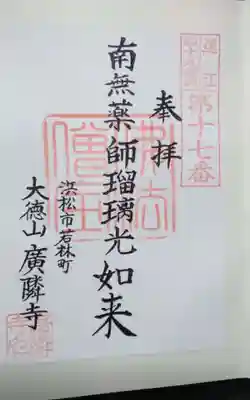 第十七番
奉拝
南無薬師瑠璃光如来
浜松市若林町
大徳山廣隣寺